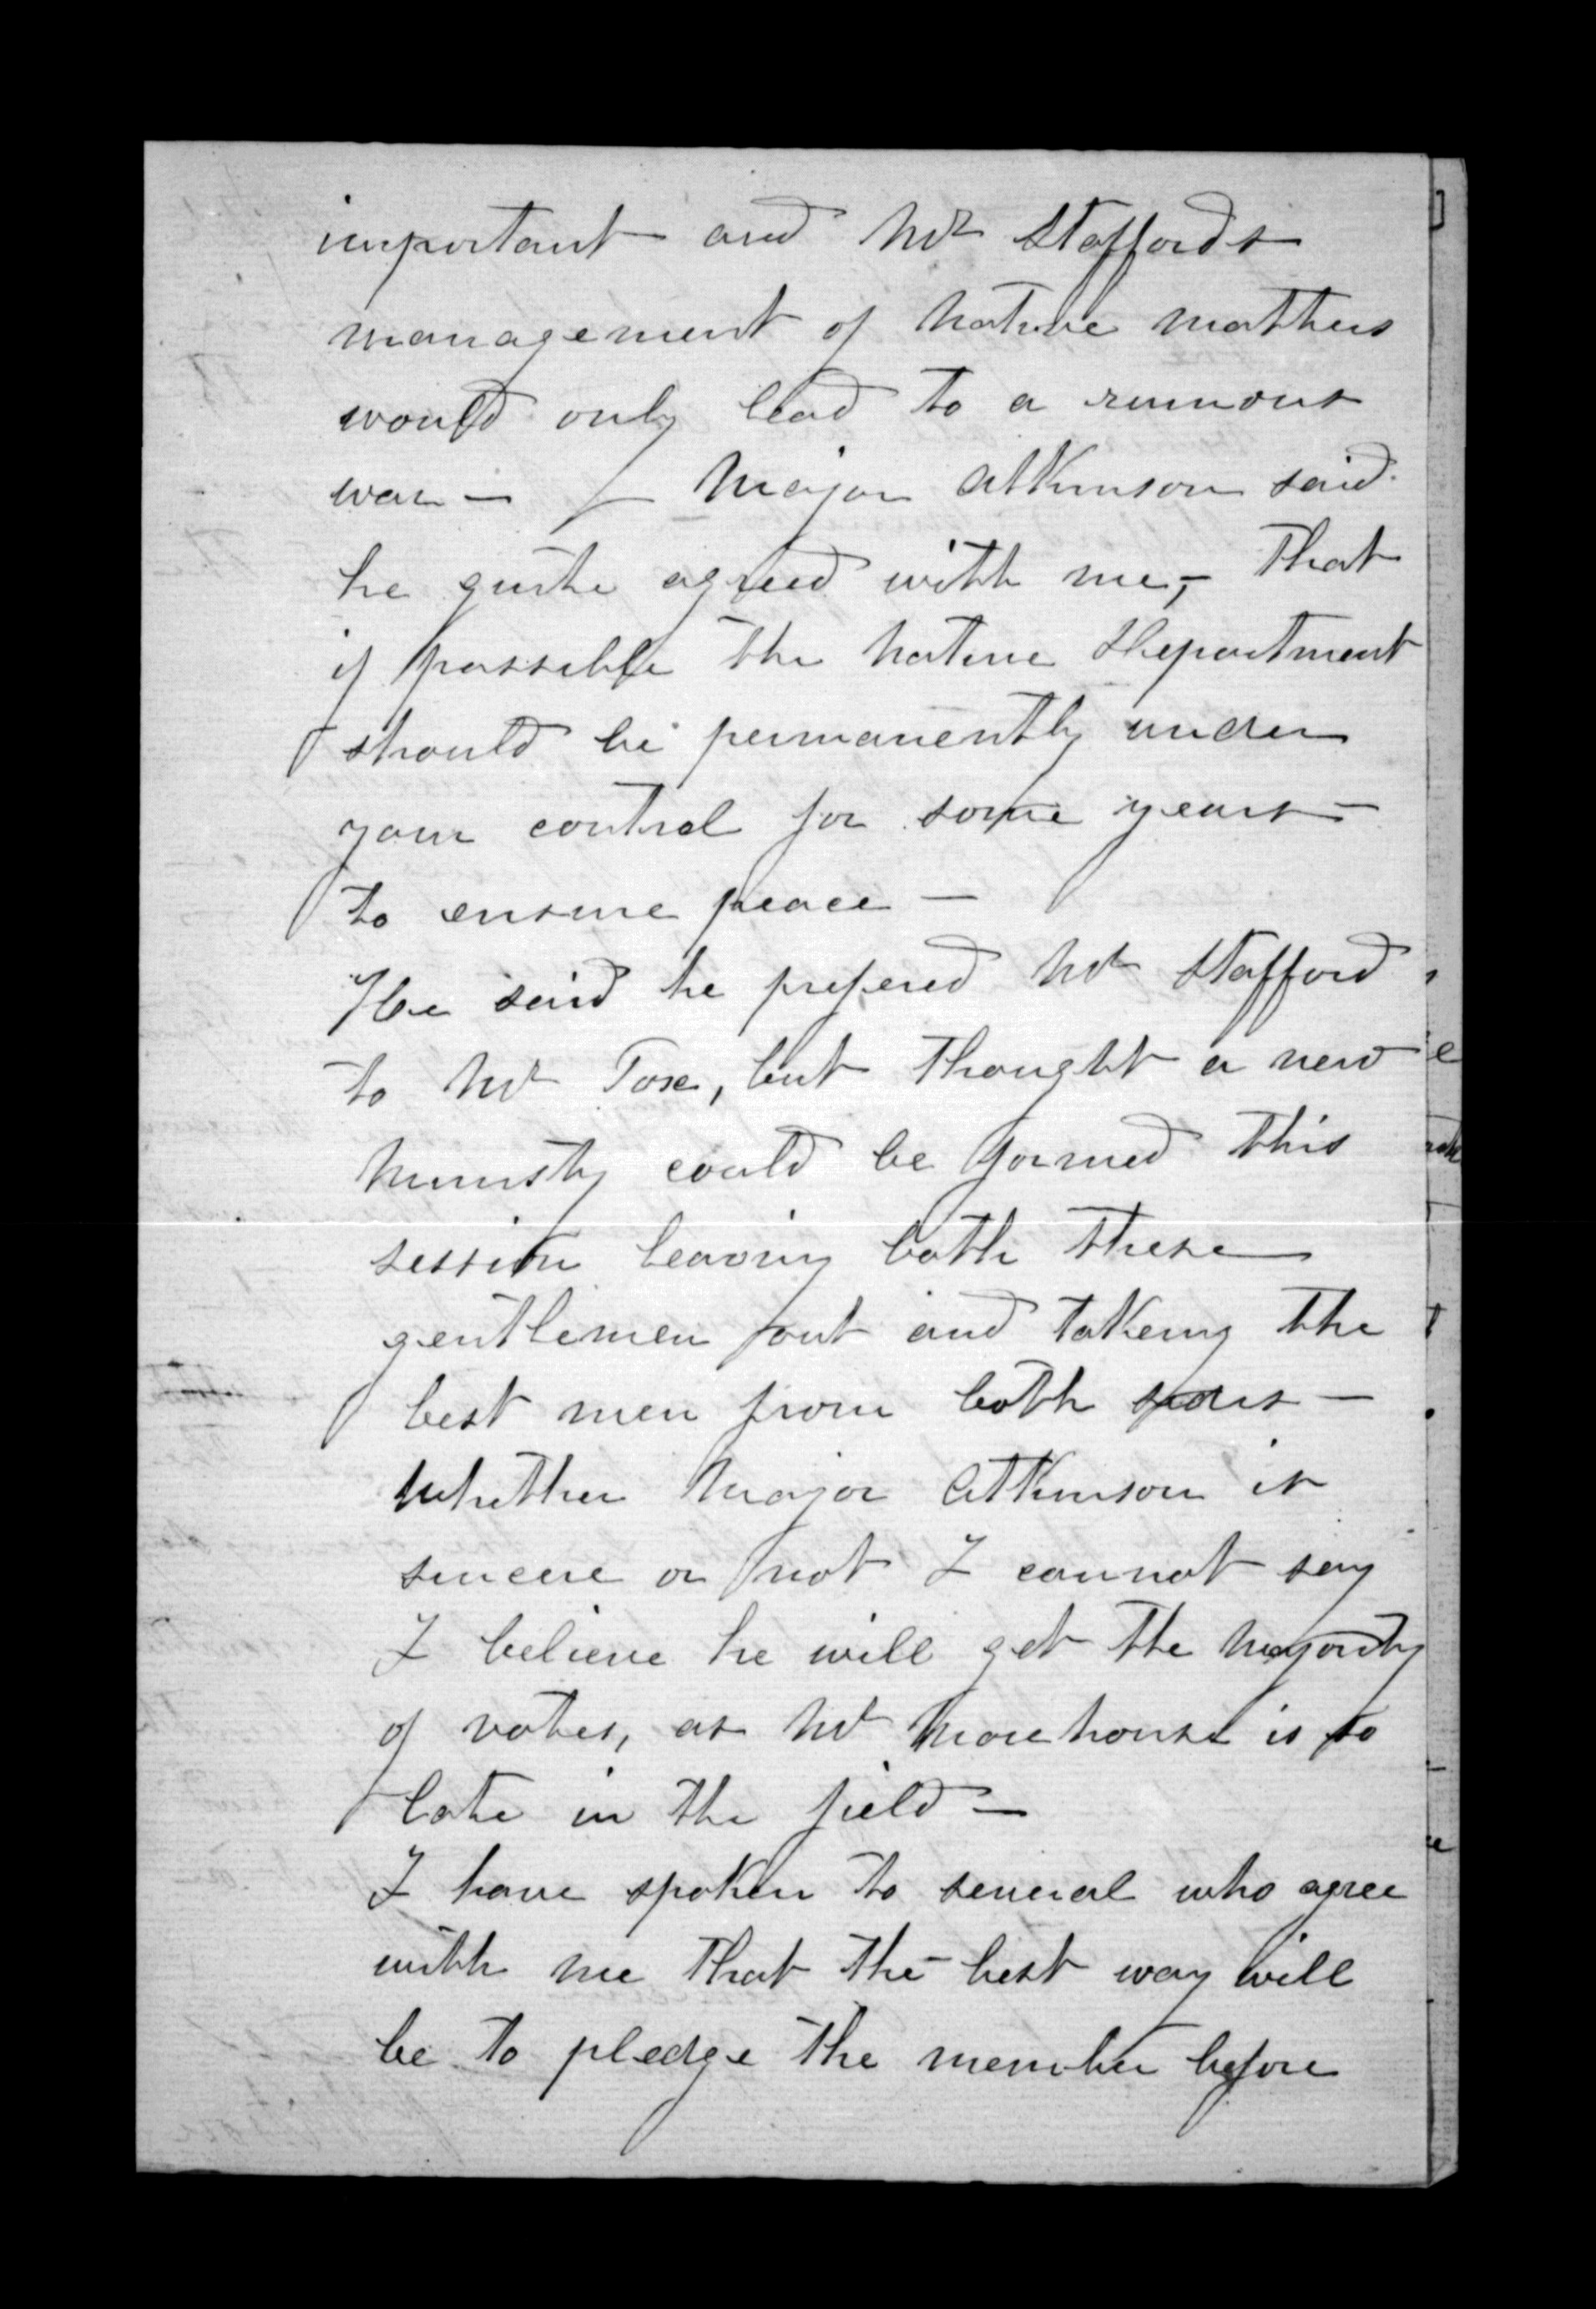 important and Mr Staffords
management of Native matters
would only lead to a ruinous
war — Major Atkinson said
he quite agreed with me, - that
if possible the Native Department
should be permanently under
your control for some years —
to ensure peace —
He said he prefered Mr Stafford
to Mr Fox, but thought a new
Ministy could be formed this
session leaving both these
gentlemen out and taking the
best men from both sides —
Whether Major Atkinson is
sincere or not I cannot say
I believe he will get the majority
of votes, as Mr Morehouse is so
late in the field —
I have spoken to several who agree
with me that the best way will
be to pledge the member before